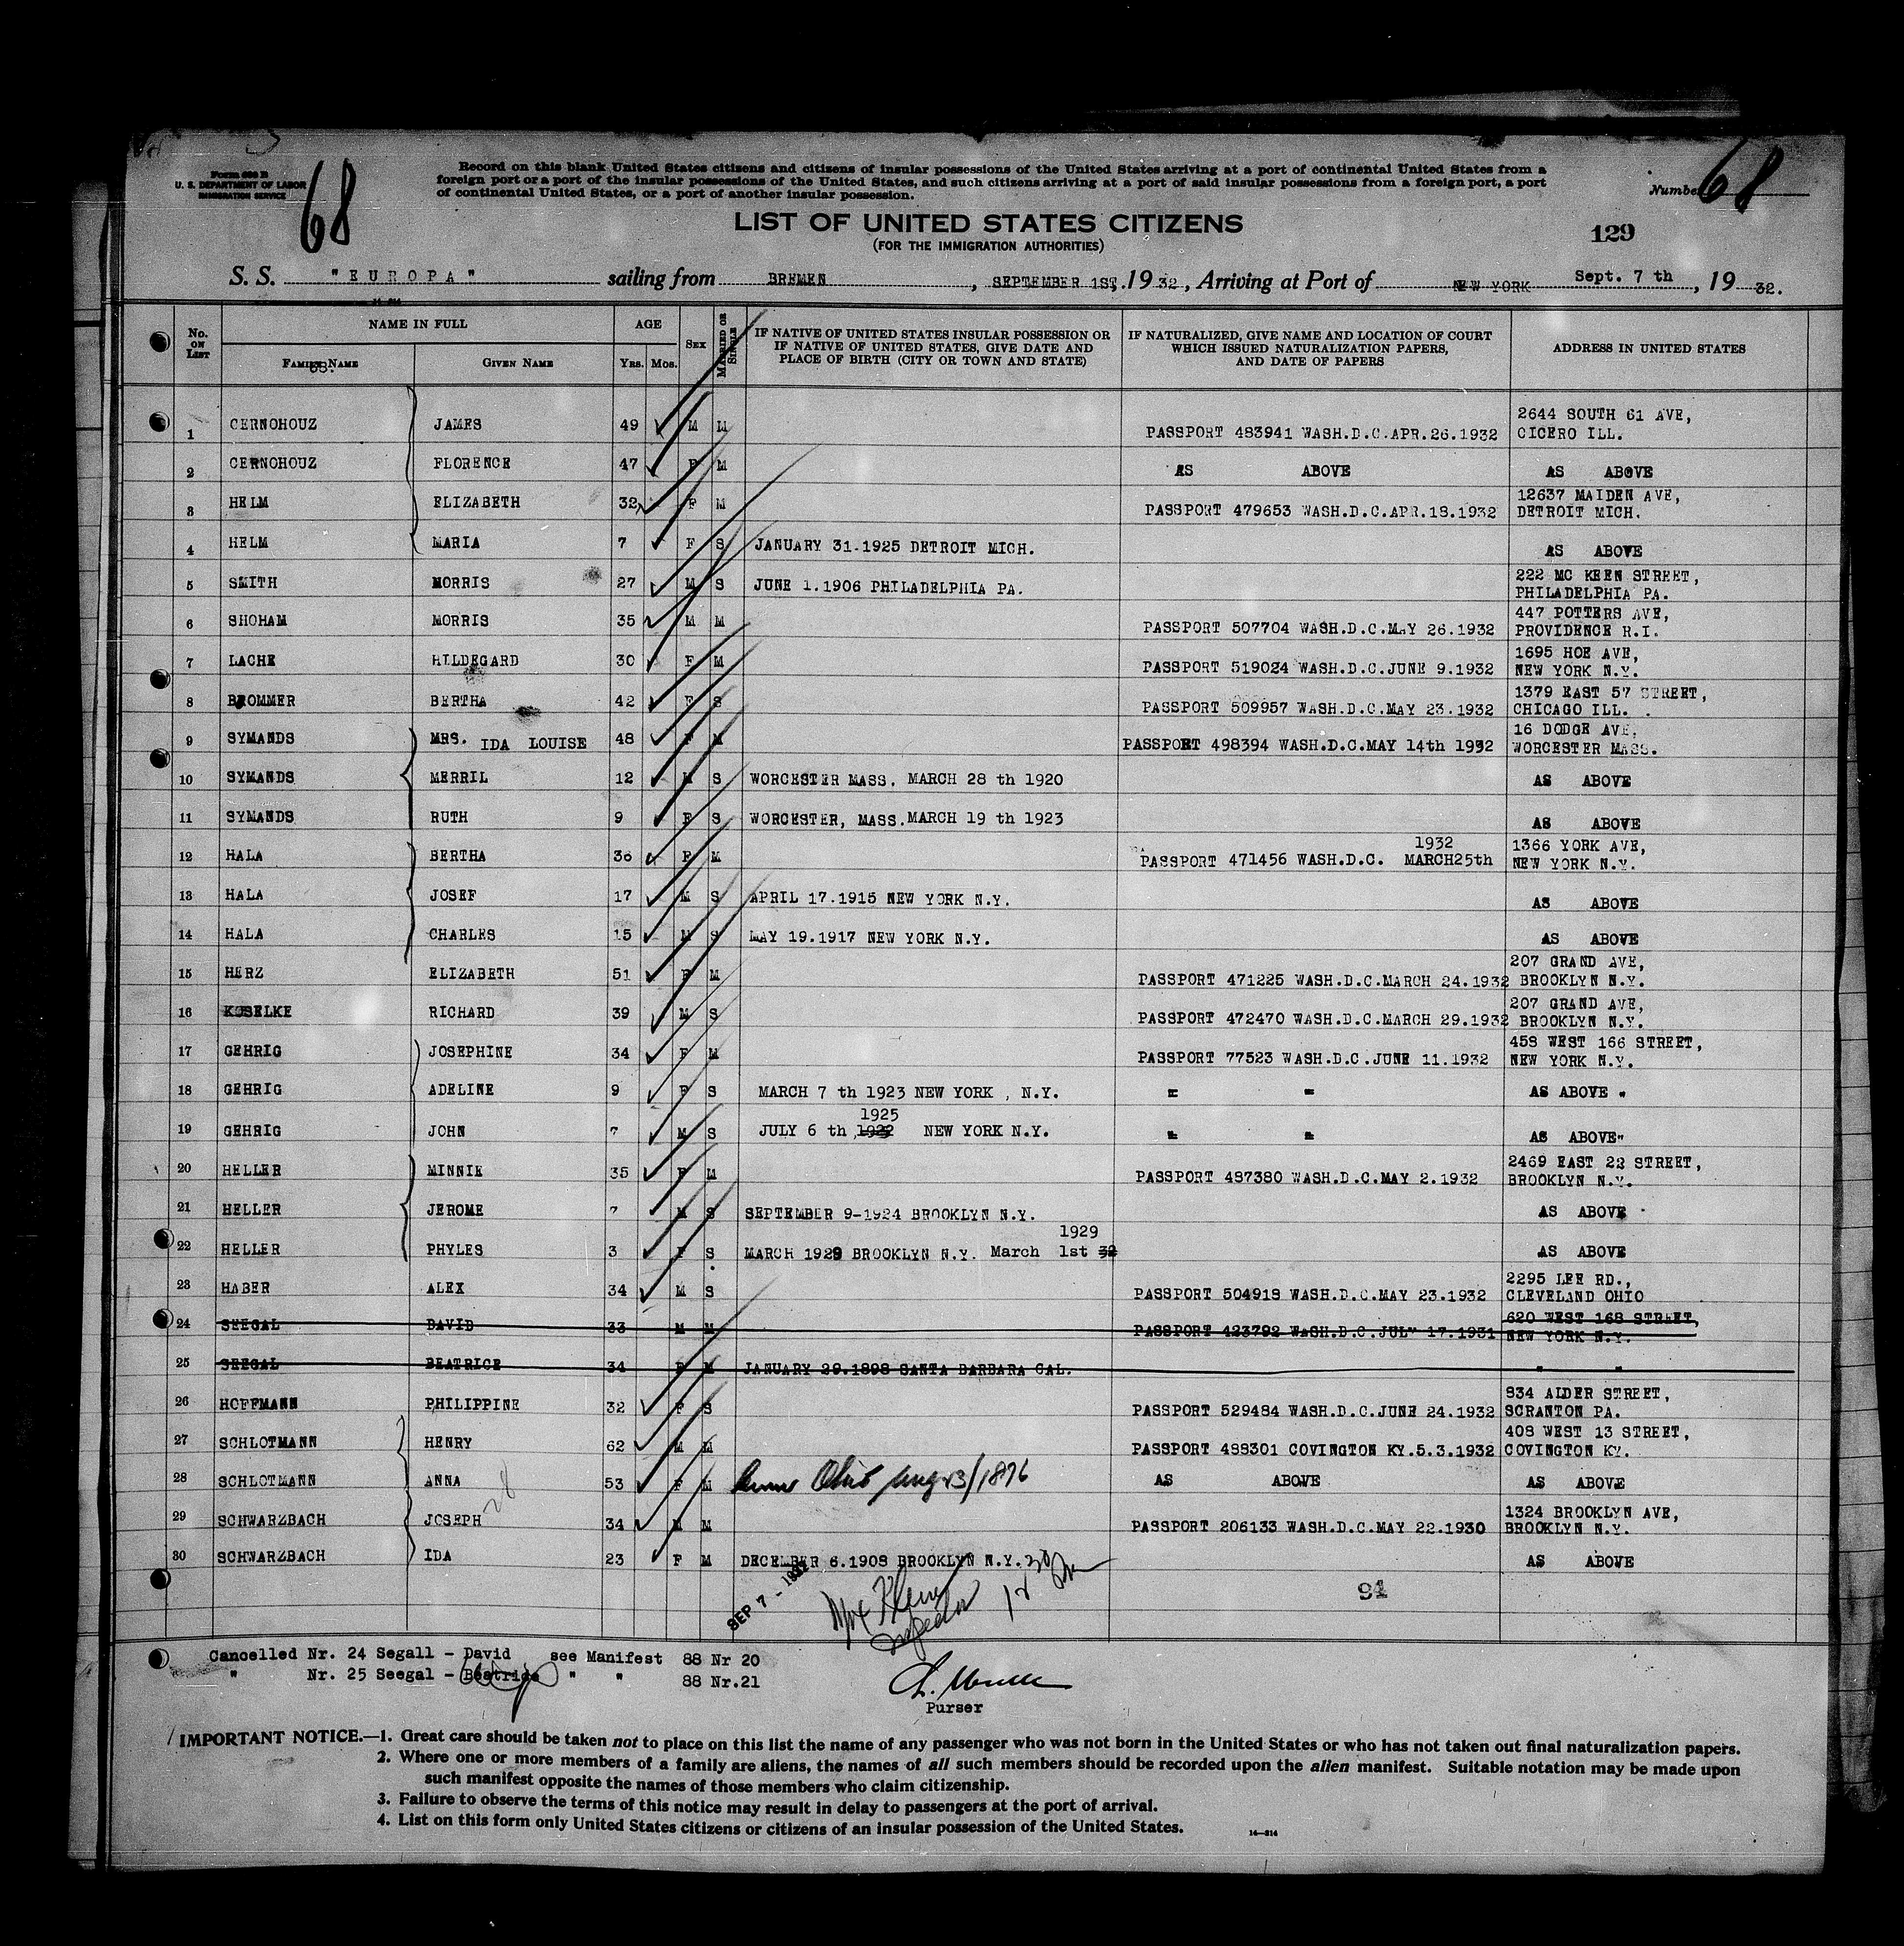 Form 630 B
U. S. DEPARTMENT OF LABOR
IMMIGRATION SERVICE
68
Record on this blank United States citizens and citizens of insular possessions of the United States arriving at a port of continental United States from a
foreign port or a port of the insular possessions of the United States, and such citizens arriving at a port of said insular possessions from a foreign port, a port
of continental United States, or a port of another insular possession.
Number 68
LIST OF UNITED STATES CITIZENS
(FOR THE IMMIGRATION AUTHORITIES)
129
S. S. "EUROPA" sailing from BREMEN, SEPTEMBER 1ST, 1932, Arriving at Port of NEW YORK Sept. 7 th, 1932.
No. ON LIST NAME IN FULL FAMILY NAME GIVEN NAME AGE Yrs. Mos. SEX MARRIED OR SINGLE IF NATIVE OF UNITED STATES INSULAR POSSESSION OR IF NATIVE OF UNITED STATES, GIVE DATE AND PLACE OF BIRTH (CITY OR TOWN AND STATE) IF NATURALIZED, GIVE NAME AND LOCATION OF COURT WHICH ISSUED NATURALIZATION PAPERS, AND DATE OF PAPERS ADDRESS IN UNITED STATES
1 CERNOHOUZ JAMES 49 M M PASSPORT 483941 WASH.D.C.APR.26.1932 2644 SOUTH 61 AVE, CICERO ILL.
2 CERNOHOUZ FLORENCE 47 F M AS ABOVE AS ABOVE
3 HELM ELIZABETH 32 F M PASSPORT 479653 WASH.D.C.APR.18.1932 12637 MAIDEN AVE, DETROIT MICH.
4 HELM MARIA 7 F S JANUARY 31.1925 DETROIT MICH. AS ABOVE
5 SMITH MORRIS 27 M S JUNE 1.1906 PHILADELPHIA PA. 222 MC KEEN STREET, PHILADELPHIA PA.
6 SHOHAM MORRIS 35 M M PASSPORT 507704 WASH.D.C.MAY 26.1932 447 POTTERS AVE, PROVIDENCE R.I.
7 LACHE HILDEGARD 30 F M PASSPORT 519024 WASH.D.C.JUNE 9.1932 1695 HOE AVE, NEW YORK N.Y.
8 BROMMER BERTHA 42 F S PASSPORT 509957 WASH.D.C.MAY 23.1932 1379 EAST 57 STREET, CHICAGO ILL.
9 SYMANDS MRS. IDA LOUISE 48 F M PASSPORT 498394 WASH.D.C.MAY 14th 1932 16 DODGE AVE, WORCESTER MASS.
10 SYMANDS MERRIL 12 M S WORCESTER MASS. MARCH 28 th 1920 AS ABOVE
11 SYMANDS RUTH 9 F S WORCESTER, MASS. MARCH 19 th 1923 AS ABOVE
12 HALA BERTHA 36 F M PASSPORT 471456 WASH.D.C. MARCH25th 1932 1366 YORK AVE, NEW YORK N.Y.
13 HALA JOSEF 17 M S APRIL 17.1915 NEW YORK N.Y. AS ABOVE
14 HALA CHARLES 15 M S MAY 19.1917 NEW YORK N.Y. AS ABOVE
15 HERZ ELIZABETH 51 F M PASSPORT 471225 WASH.D.C.MARCH 24.1932 207 GRAND AVE, BROOKLYN N.Y.
16 KOSELKE RICHARD 39 M S PASSPORT 472470 WASH.D.C.MARCH 29.1932 207 GRAND AVE, BROOKLYN N.Y.
17 GEHRIG JOSEPHINE 34 F M PASSPORT 77523 WASH.D.C.JUNE 11.1932 458 WEST 166 STREET, NEW YORK N.Y.
18 GEHRIG ADELINE 9 F S MARCH 7 th 1923 NEW YORK , N.Y. " " AS ABOVE "
19 GEHRIG JOHN 7 M S JULY 6 th 1922 1925 NEW YORK N.Y. " " AS ABOVE"
20 HELLER MINNIE 35 F M PASSPORT 487380 WASH.D.C.MAY 2.1932 2469 EAST 22 STREET, BROOKLYN N.Y.
21 HELLER JEROME 7 M S SEPTEMBER 9-1924 BROOKLYN N.Y. AS ABOVE
22 HELLER PHYLES 3 F S MARCH 1929 BROOKLYN N.Y. March 1st 32 1929 AS ABOVE
23 HABER ALEX 34 M S PASSPORT 504918 WASH.D.C.MAY 23.1932 2295 LEE RD., CLEVELAND OHIO
24 SEEGAL DAVID 33 M M PASSPORT 423792 WASH.D.C.JULY 17.1931 620 WEST 168 STREET, NEW YORK N.Y.
25 SEEGAL BEATRICE 34 F M JANUARY 29.1898 SANTA BARBARA CAL. " "
26 HOFFMANN PHILIPPINE 32 F S PASSPORT 529484 WASH.D.C.JUNE 24.1932 834 ALDER STREET, SCRANTON PA.
27 SCHLOTMANN HENRY 62 M M PASSPORT 488301 COVINGTON KY.5.3.1932 408 WEST 13 STREET, COVINGTON KY.
28 SCHLOTMANN ANNA 53 F M Ohio Aug 23/1876 AS ABOVE AS ABOVE
29 SCHWARZBACH JOSEPH 34 M M PASSPORT 206133 WASH.D.C.MAY 22.1930 1324 BROOKLYN AVE, BROOKLYN N.Y.
30 SCHWARZBACH IDA 23 F M DECEMBER 6.1908 BROOKLYN N.Y. AS ABOVE
SEP 7 - 1932
Klein
Inspector
94
Cancelled Nr. 24 Segall - David see Manifest 88 Nr 20
" Nr. 25 Seegal - Beatrice " " 88 Nr.21
Purser
IMPORTANT NOTICE.—1. Great care should be taken not to place on this list the name of any passenger who was not born in the United States or who has not taken out final naturalization papers.
2. Where one or more members of a family are aliens, the names of all such members should be recorded upon the alien manifest. Suitable notation may be made upon
such manifest opposite the names of those members who claim citizenship.
3. Failure to observe the terms of this notice may result in delay to passengers at the port of arrival.
4. List on this form only United States citizens or citizens of an insular possession of the United States.
14—314